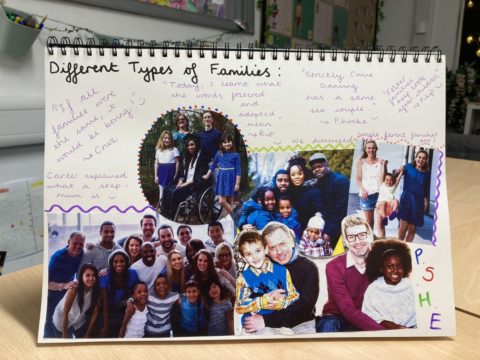 Different Types of Families :
"If all
families were
the same, it
would be boring"
~ Cruz
"Today, I learnt what
the words fostered
and
adopted
mean.
~ Rio
"Strictly Come
Dancing
has a same
sex couple"
~ Phoebe
"Foster
families
find care
after children"
Carter explained
what a step-
mum is
we discussed
single parent families
P.
S.
H.
E